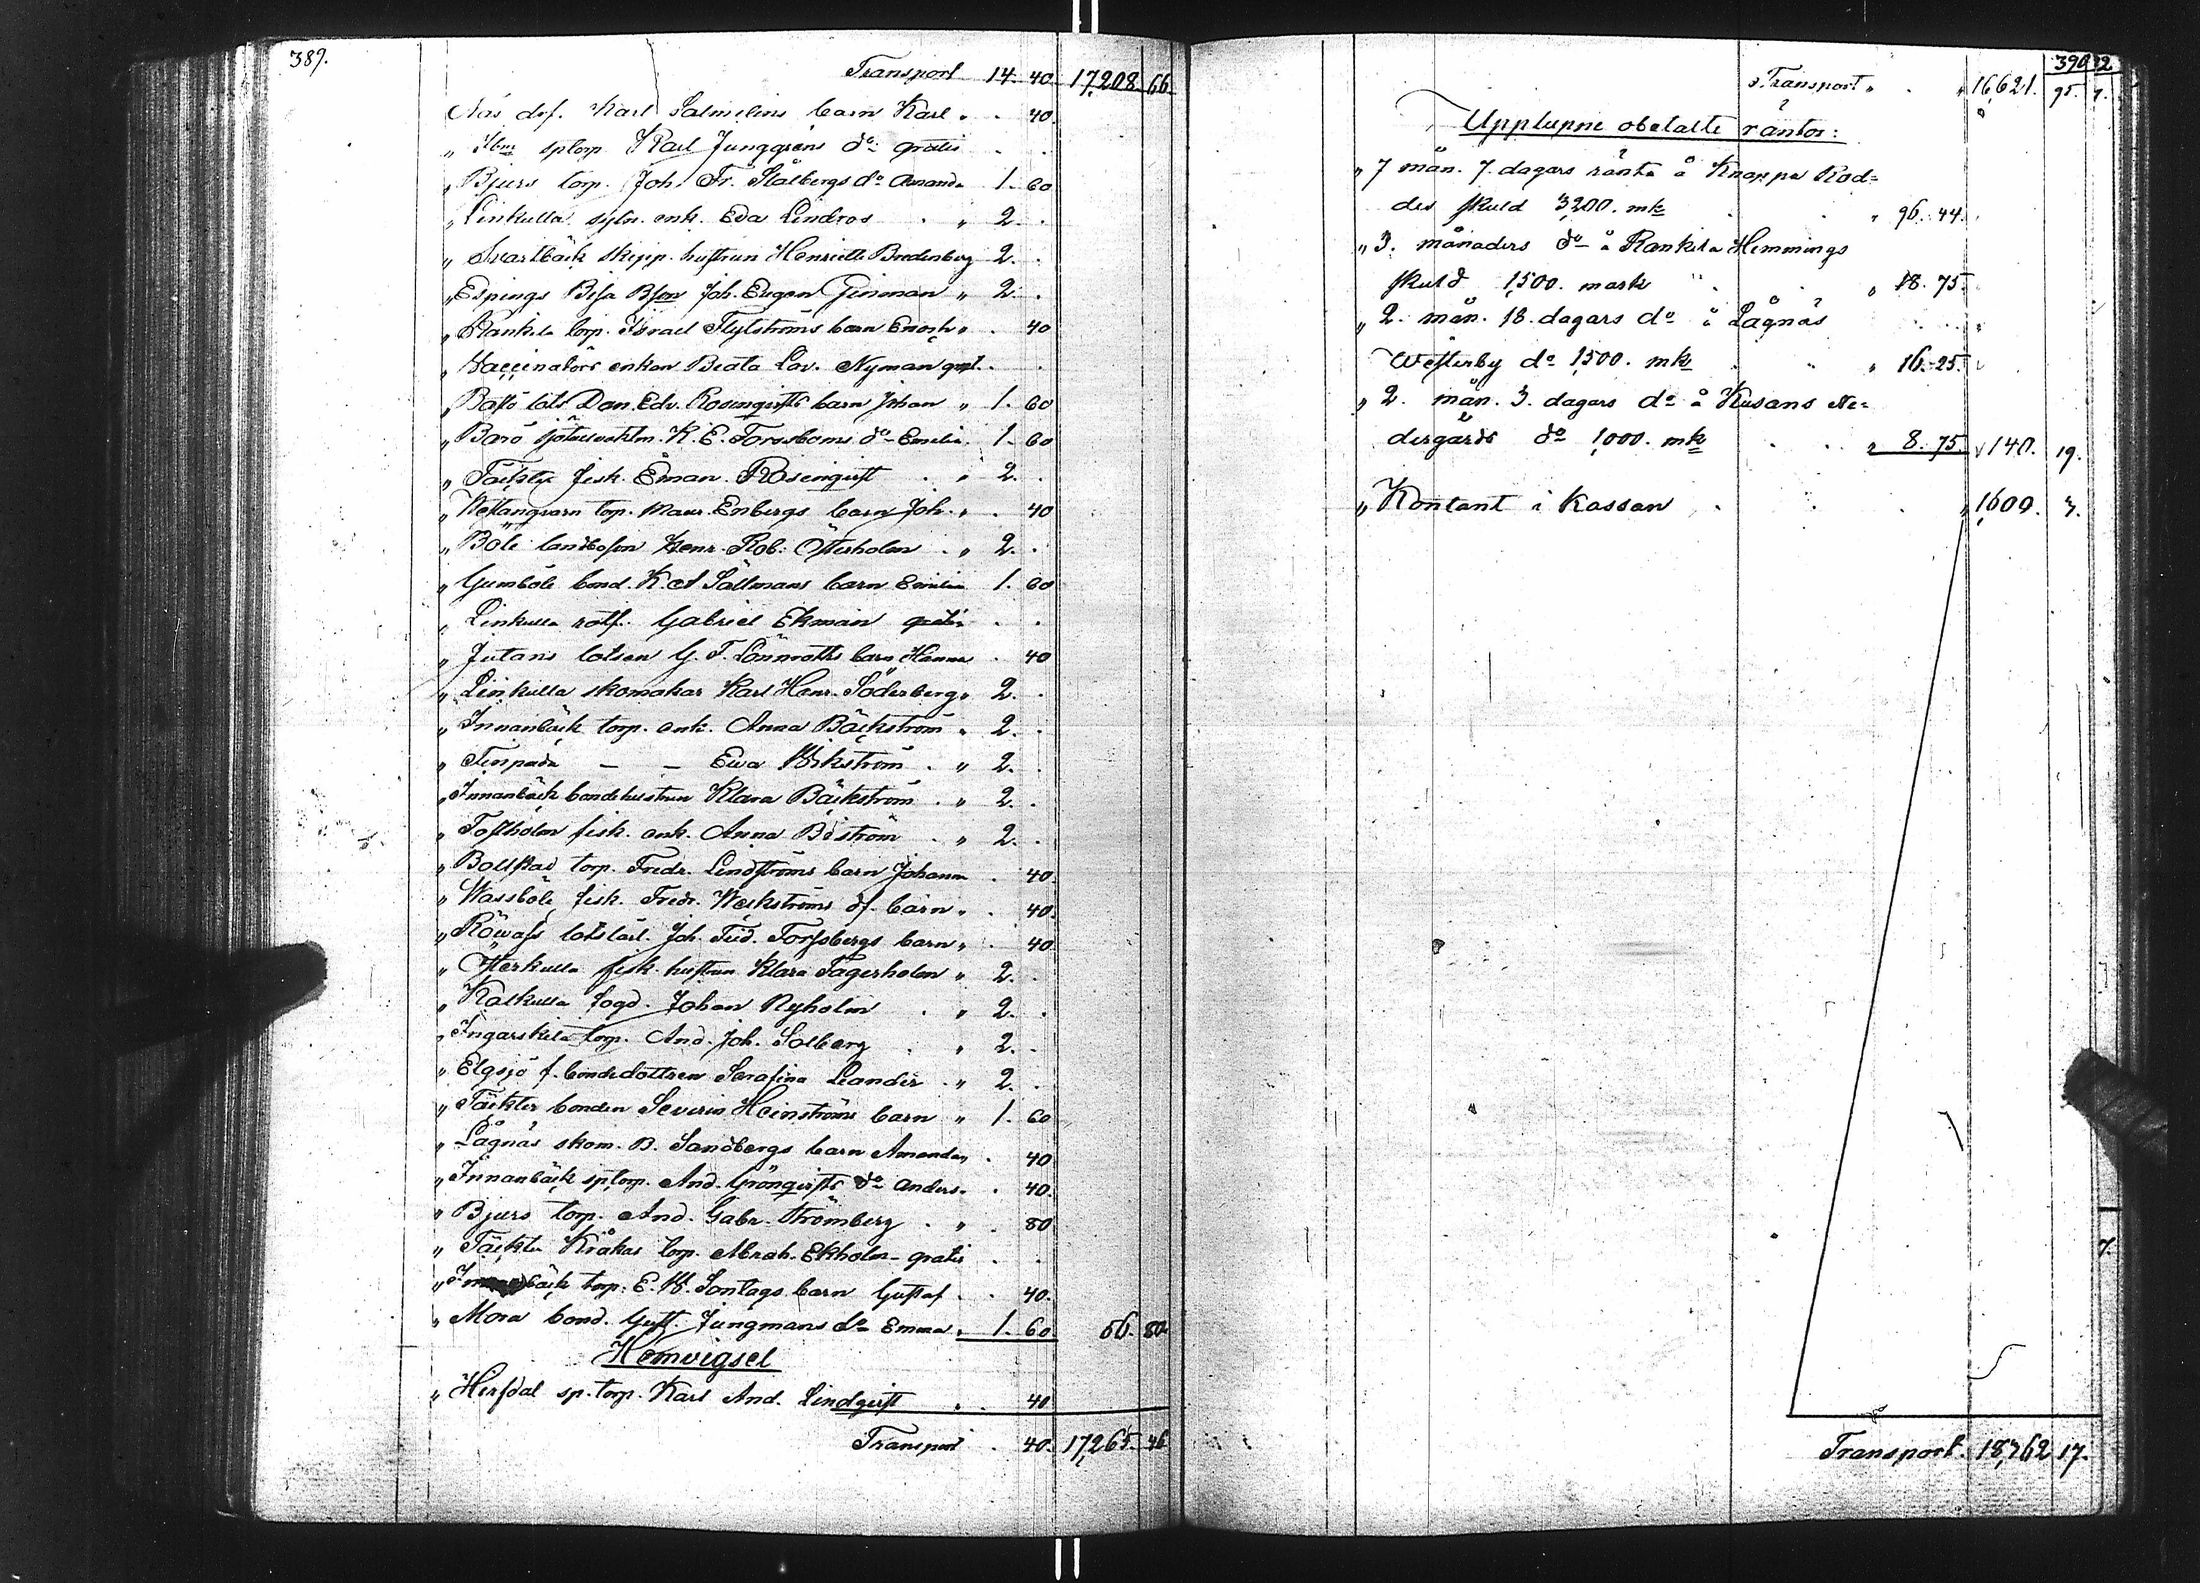 389.
Transport 14. 40 17,208. 66
Näs drf. Karl Salmelins barn Karl " . 40.
" Ibm sptorp Karl Junggrens do gratis . .
" Bjurs torp. Joh. Fr. Stålbergs do Amanda 1. 60
" Linkulla sytn. enk. Eva Lindros . " 2. .
" Svartbäck skepp. hustrun Henriette Bredenberg 2. .
" Espings Besa Bson Joh. Evgen Ginman " 2. .
" Rankila torp. Israel Flyströms barn Enock " . 40
" Vaccinatörs enkan Beata Lov. Nyman grat. . .
" Basö lots Dan. Edv. Rosenqvists barn Johan " 1. 60
" Barö K. E. Forsboms do Emelie. 1. 60
" Täckter fisk. Eman. Rosenqvist . " 2. .
" Westanqvarn torp. Maur. Enbergs barn Joh. " . 40
" Böle landboson Henr. Rob. Österholm . " 2. .
" Gumböle bond. K. A Sällmans barn Emilia 1. 60
" Linkulla rotf. Gabriel Ekman gratis . .
" Jutans lotsen G. F. Lönnroths barn Hanna . 40
" Linkulla skomakar Karl Henr. Söderberg " 2. .
" Innanbäck torp. enk. Anna Bäckström " 2. .
" Finpada — — Eva Wikström . " 2. .
" Innanbäck bondehustrun Klara Bäckström . " 2. .
" Tostholm fisk. enk. Anna Boström . " 2. .
" Bollstad torp. Fredr. Lindströms barn Johanna . 40.
" Wassböle fisk. Fredr. Weckströms df. barn " . 40.
" Röwass lotslärl. Joh. Fred. Forssbergs barn " . 40
" Österkulla fisk. hustrun Klara Fagerholm " 2. .
" Kalkulla fogd. Johan Nyholm . " 2. .
" Ingarskila torp. And. Joh. Solberg . " 2. .
" Elgsjö f. bondedottren Serafina Leander . " 2. .
" Täckter bonden Severin Heinströms barn " 1. 60
" Lågnäs skom. B. Sandbergs barn Amanda " . 40
" Innanbäck sptorp. And. Grönqvists do Anders . . 40.
" Bjurs torp. And. Gabr. Strömberg . " . 80
" Täckter Kråkas torp. Abrah. Ekholm - gratis . .
" torp. E. W. Sontags barn Gustaf . . 40.
" Mora bond. Gust. Jungmans do Emma " 1. 60 56. 80
Hemvigsel
" Hirsdal sp. torp. Karl And. Lindqvist . . 40
Transport . 40. 17,265. 46
390
Transport " . " 16,621. 95. 7.
Upplupne obetalte räntor:
" 7 mån. 7. dagars ränta å Knappa Rod=
des skuld 3,200. mk . . " 96. 44.
" 3. månaders do å Rankila Hemmings
skuld 1,500. mark " . . " 18. 75.
" 2. mån. 18. dagars do å Lågnäs . . .
Westerby do 1,500. mk . " . " 16. 25.
" 2. mån. 3. dagars do å Kusans Ne=
dergårds do 1,000. mk . . . " 8. 75. " 140. 19.
" Kontant i Kassan . . . " 1,600. 3.
7.
Transport. 18,362 17.